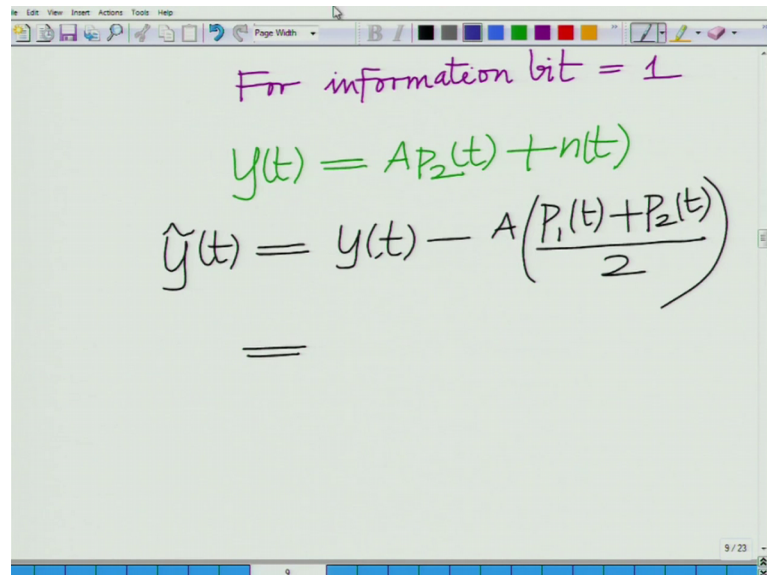 le Edit View Insert Actions Tools Help
Page Width
B I
For information bit = 1
y(t) = Ap₂(t) + n(t)
ỹ(t) = y(t) − A(p₁(t) + p₂(t) / 2)
=
9 / 23
9